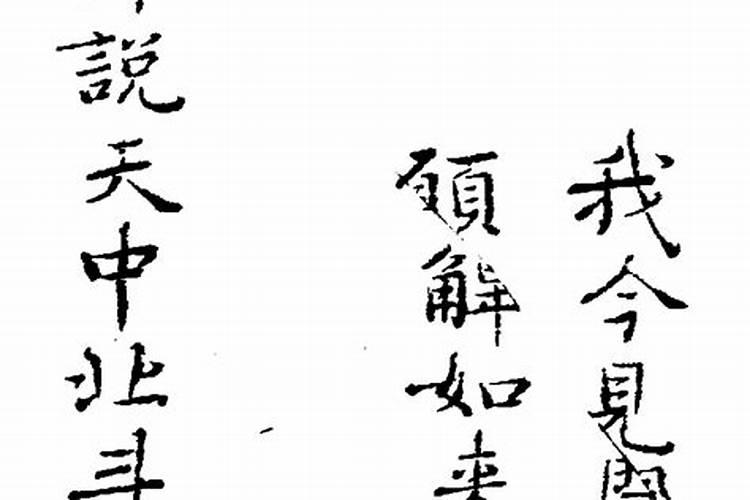 我今見聞
願解如來
說天中北斗